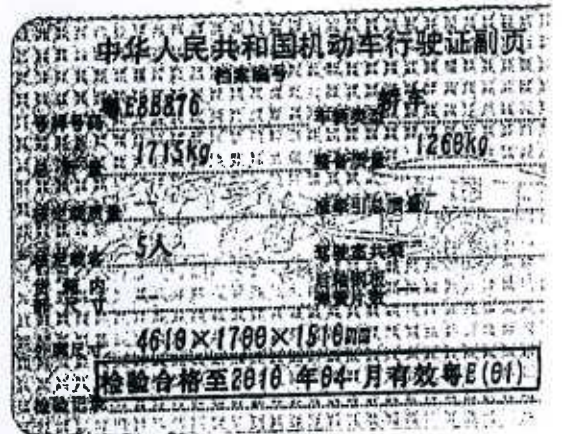 中华人民共和国机动车行驶证副页
档案编号
号牌号码 粤EBB876 车辆类型 轿车
总质量 1715kg 整备质量 1260kg
核定载质量 -- 准牵引总质量 --
核定载客 5人 驾驶室共乘 --
货箱内 -- 后轴钢板
部尺寸 弹簧片数 --
外廓尺寸 4610×1700×1510mm
检验合格至2010年04月有效粤E(01)
检验记录